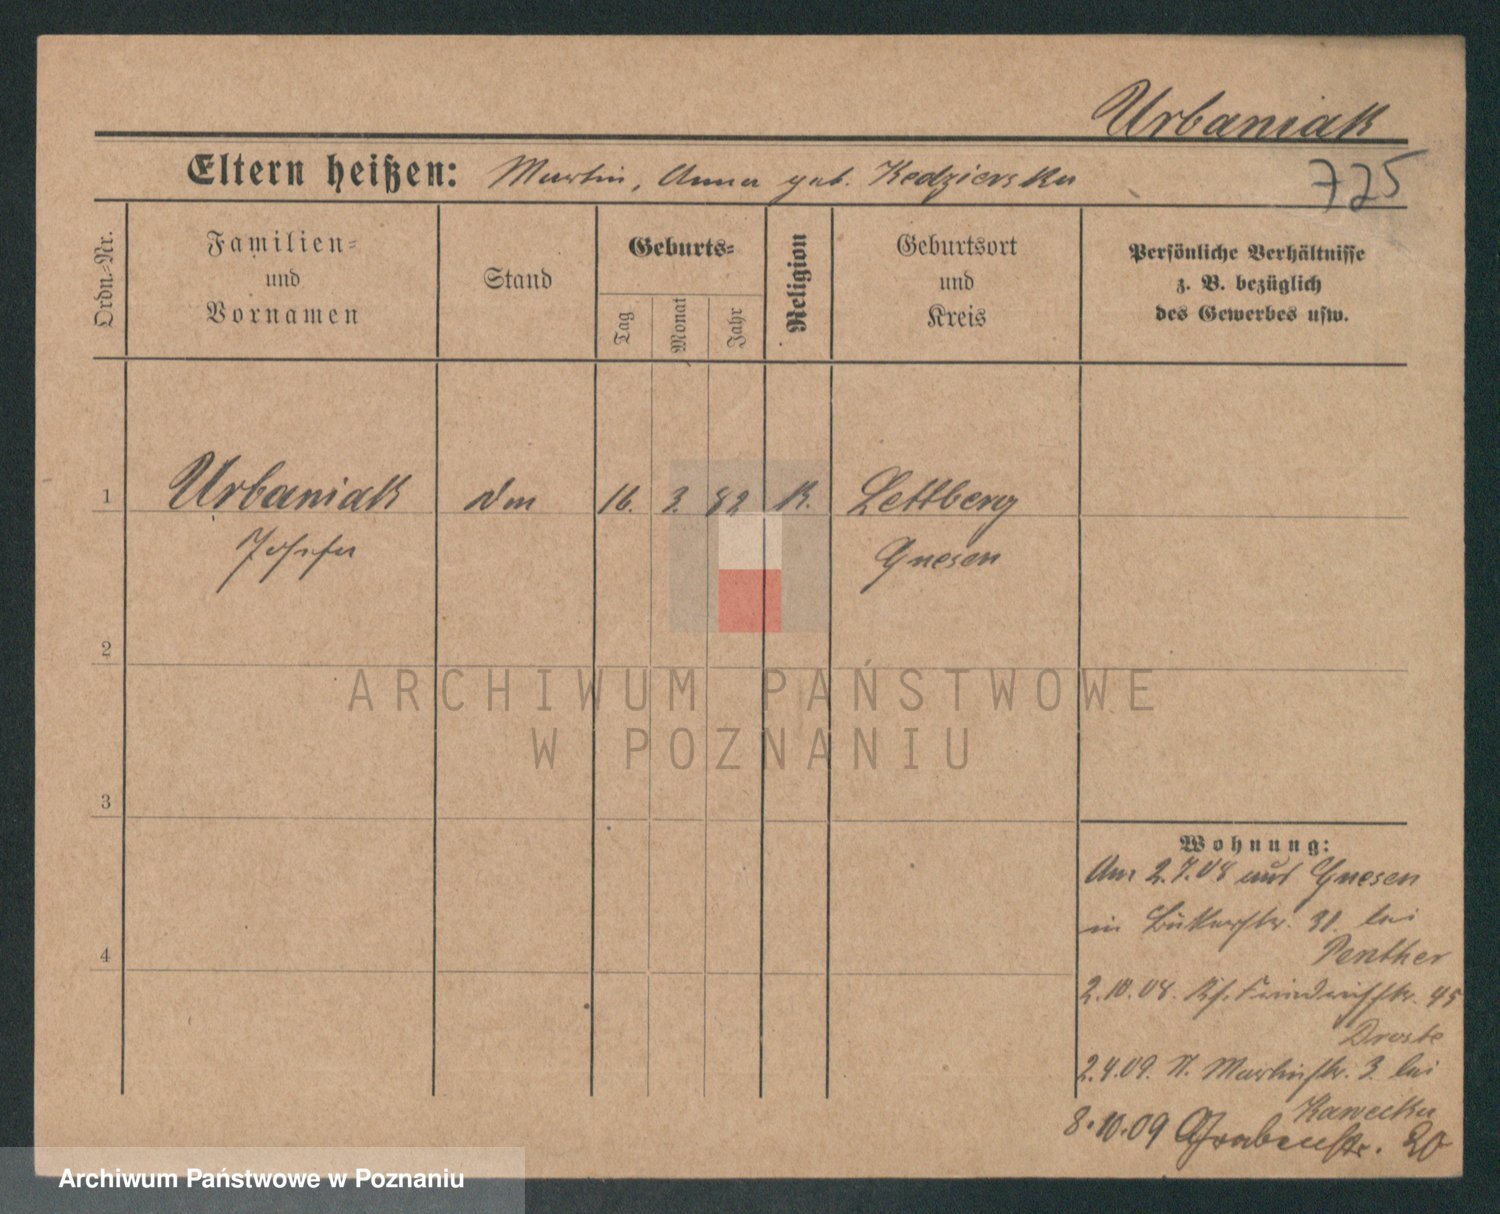 Urbaniak
Eltern heißen: Martin, Anna geb. Kedzierska
725
Ordn.-Nr.
Familien-
und
Vornamen
Stand
Geburts-
Tag
Monat
Jahr
Religion
Geburtsort
und
Kreis
Persönliche Verhältnisse
z. B. bezüglich
des Gewerbes usw.
1 Urbaniak 16. 3. 82 K. Lettberg
Josefa Gnesen
2
3
4
Wohnung:
Am 2.7.08 aus Gnesen
in Bukerstr. 31. bei
Penther
2.10.08. 45
Droste
2.4.09. N. Martinstr. 3 bei
Kawecka
8.10.09 Grabenstr. 20
ARCHIWUM PAŃSTWOWE
W POZNANIU
Archiwum Państwowe w Poznaniu